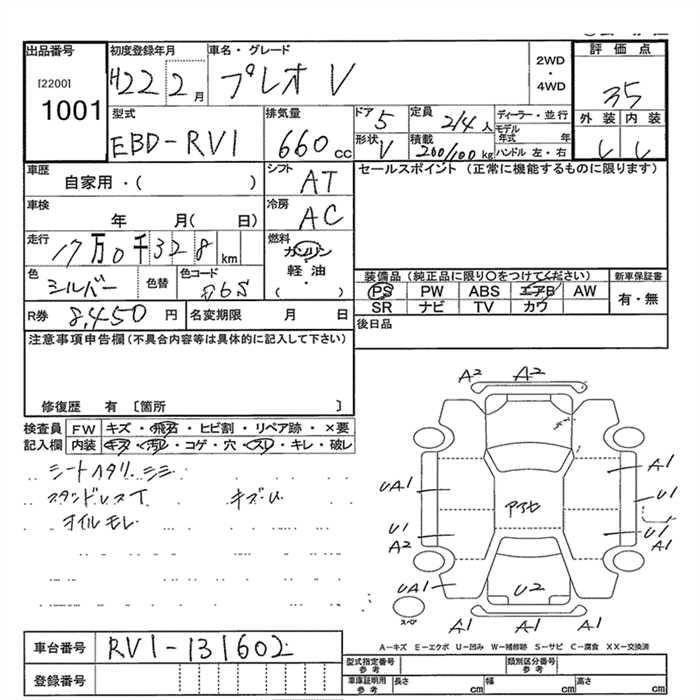 出品番号
[2200]
1001
初度登録年月
H22 2月
車名・グレード
プレオ V
2WD
・
4WD
評価点
3.5
外装 内装
C C
型式
EBD-RV1
排気量
660 cc
ドア 5
定員 2/4 人
形状 V
積載 200/100 kg
ディーラー・並行
モデル年式 年
ハンドル 左・右
車歴
自家用・( )
シフト
AT
セールスポイント (正常に機能するものに限ります)
車検
年 月( 日)
冷房
AC
走行
17万0千328 km
燃料
ガソリン
・
軽油
・
( )
色
シルバー
色替
色コード
R券 8,450 円
名変期限 月 日
装備品 (純正品に限り○をつけてください)
新車保証書
PS PW ABS エアB AW
SR ナビ TV カワ
有・無
後日品
注意事項申告欄 (不具合内容等は具体的に記入して下さい)
修復歴 有 〔箇所 〕
検査員 FW キズ・飛石・ヒビ割・リペア跡・×要
記入欄 内装 キズ・汚れ・コゲ・穴・スレ・キレ・破レ
シートヘタリ シミ
オイルモレ
A2 A2
A1
UA1
U1
U1
U1
A2
A1
UA1
U2
A1
スペア
A1 A1
A-キズ E-エクボ U-凹み W-補修跡 S-サビ C-腐食 XX-交換済
車台番号
RV1-131602
登録番号
型式指定番号 参考
類別区分番号 参考
車庫証明用 参考
長さ cm 幅 cm 高さ cm